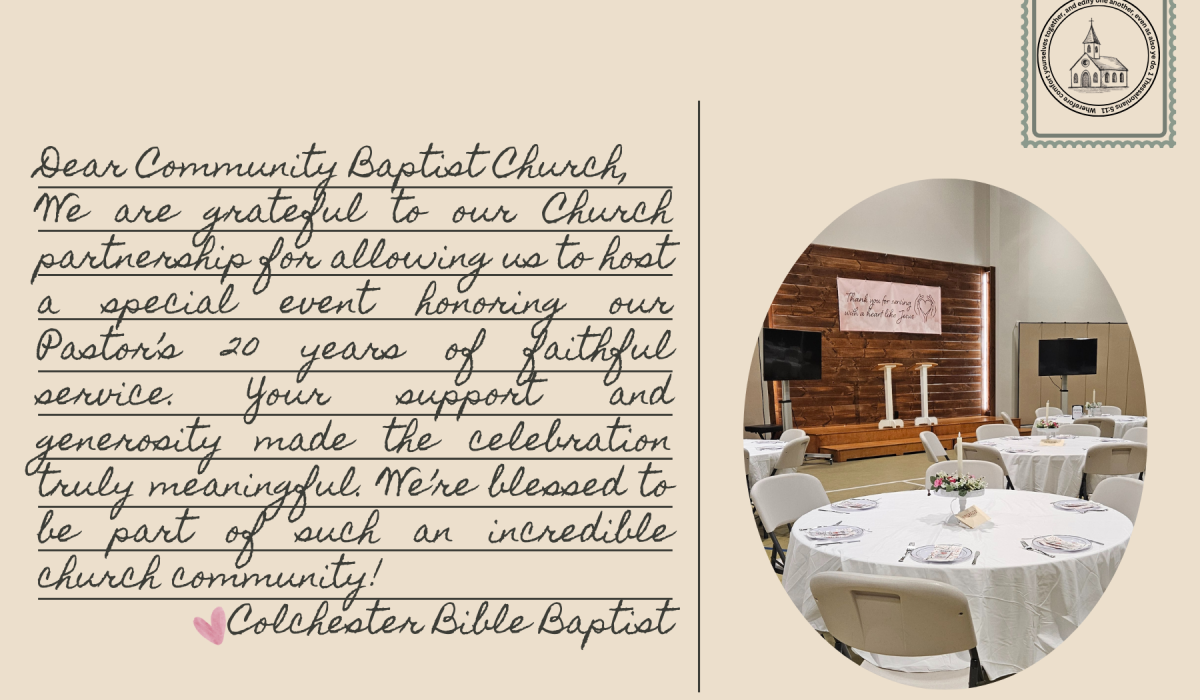 Wherefore comfort yourselves together, and edify one another, even as also ye do. 1 Thessalonians 5:11
Dear Community Baptist Church,
We are grateful to our Church
partnership for allowing us to host
a special event honoring our
Pastor's 20 years of faithful
service. Your support and
generosity made the celebration
truly meaningful. We're blessed to
be part of such an incredible
church community!
Colchester Bible Baptist
Thank you for serving
with a heart like Jesus